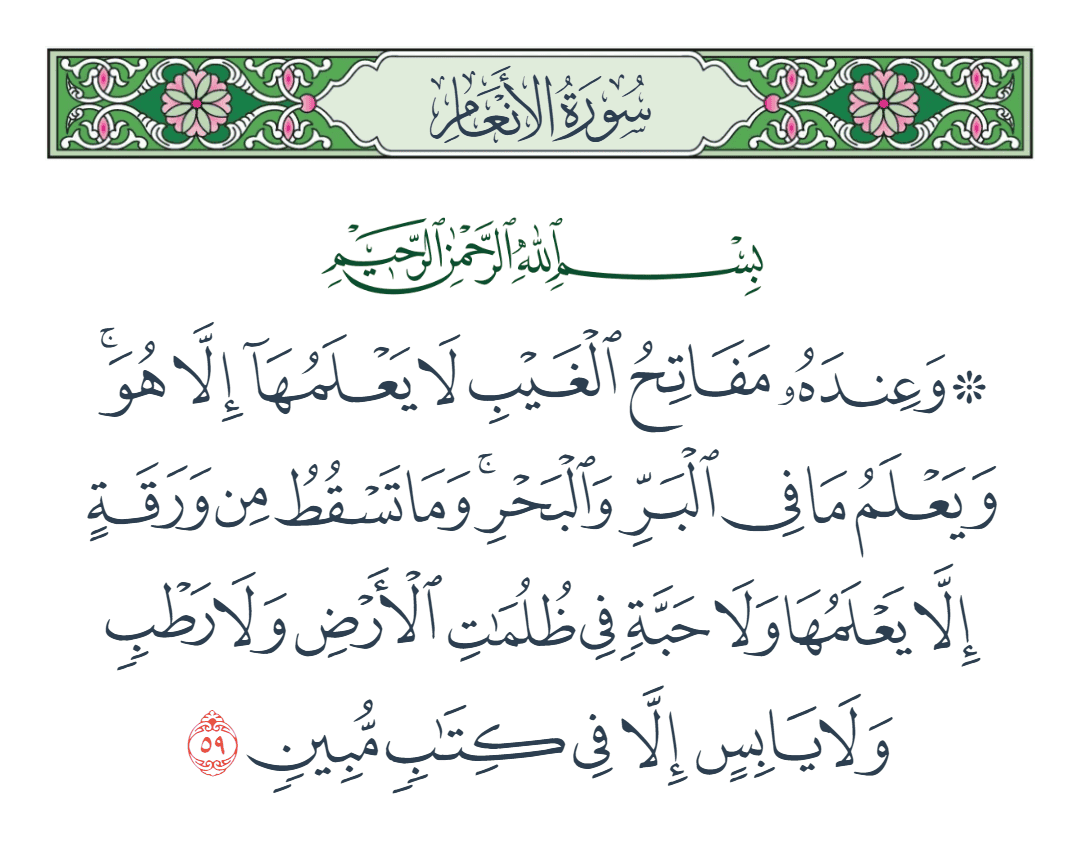 سُورَةُ الأَنْعَامِ
بِسْمِ ٱللَّهِ ٱلرَّحْمَٰنِ ٱلرَّحِيمِ
۞ وَعِندَهُۥ مَفَاتِحُ ٱلْغَيْبِ لَا يَعْلَمُهَآ إِلَّا هُوَ ۚ
وَيَعْلَمُ مَا فِى ٱلْبَرِّ وَٱلْبَحْرِ ۚ وَمَا تَسْقُطُ مِن وَرَقَةٍ
إِلَّا يَعْلَمُهَا وَلَا حَبَّةٍ فِى ظُلُمَٰتِ ٱلْأَرْضِ وَلَا رَطْبٍ
وَلَا يَابِسٍ إِلَّا فِى كِتَٰبٍ مُّبِينٍ ٥٩